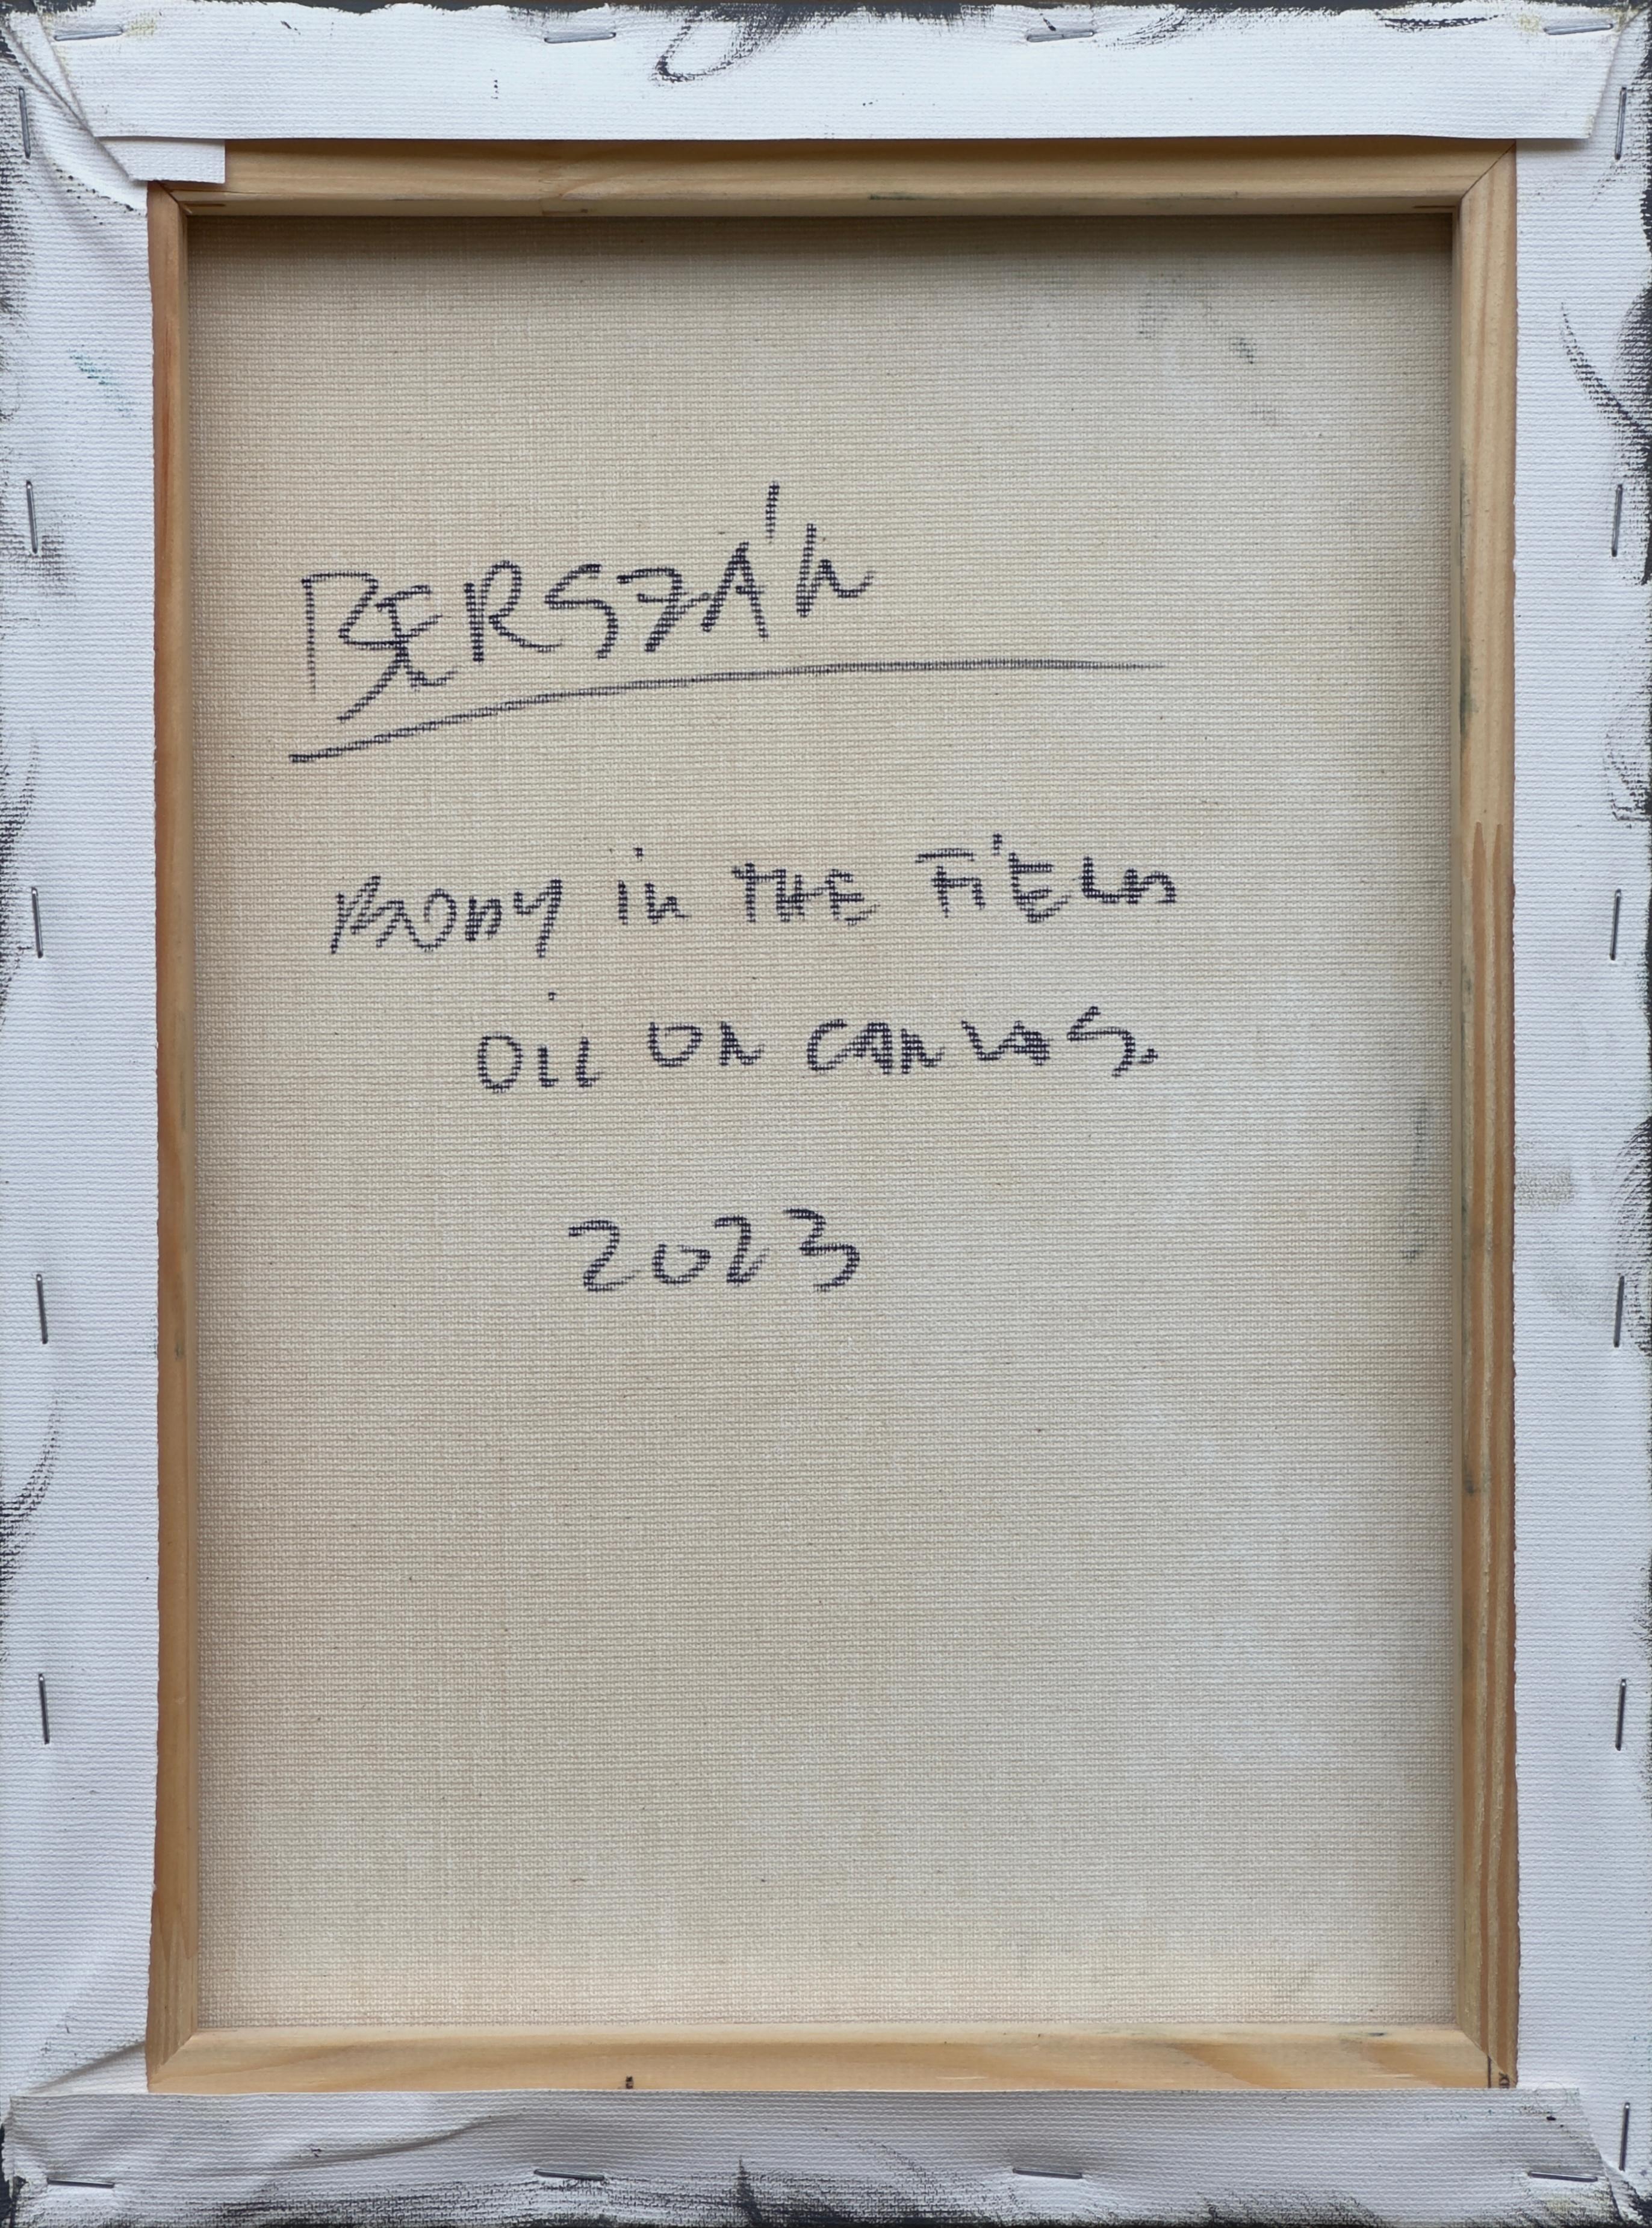 BERSZÁN
BODY in THE FiELD
OiL ON CANVAS.
2023